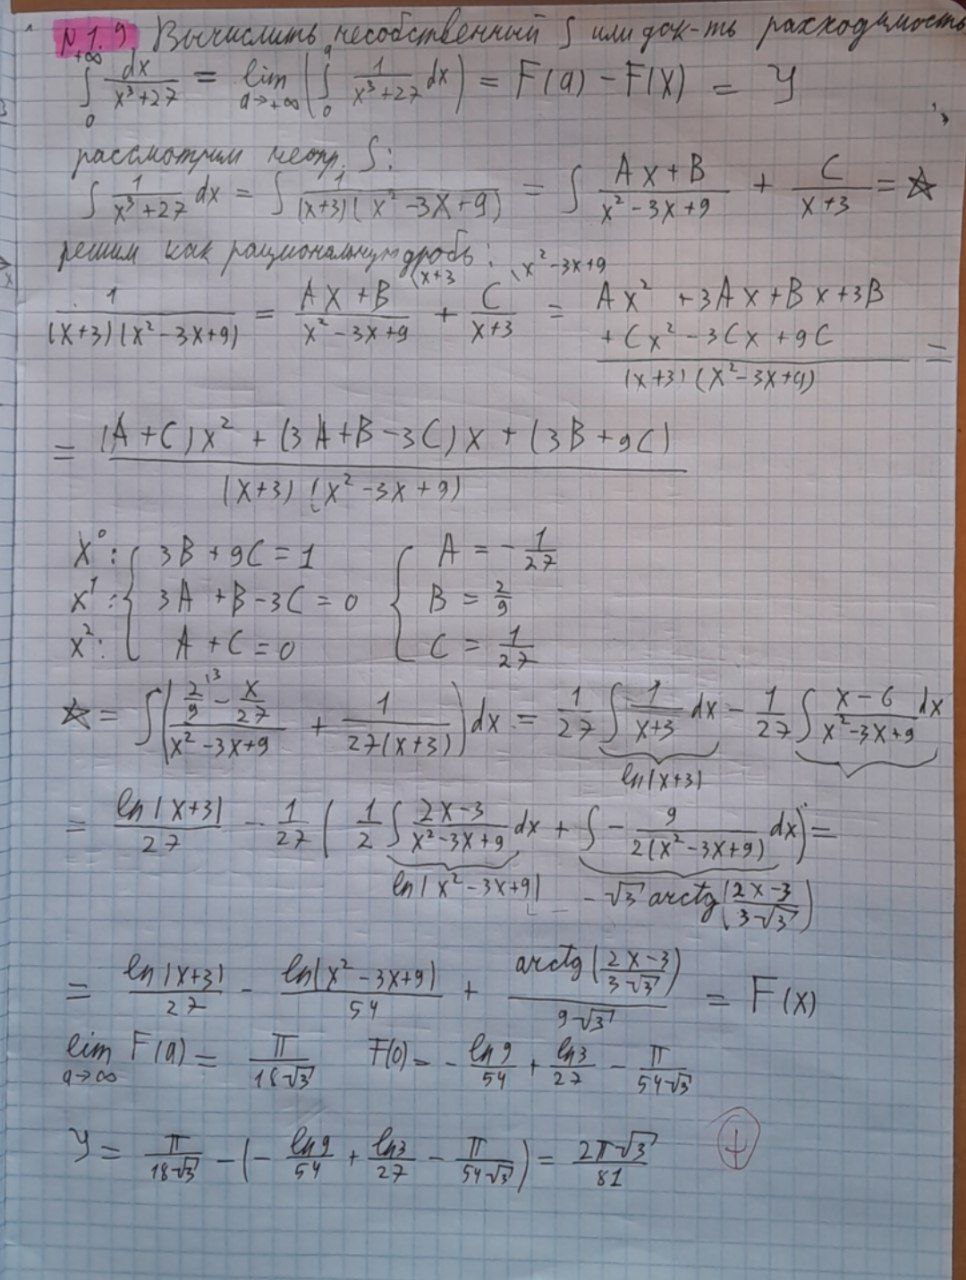 N 1.9. Вычислить несобственный ∫ или док-ть расходимость
∫₀^{+∞} dx/(x³+27) = lim_{a→+∞} (∫₀^a 1/(x³+27) dx) = F(a) − F(x) = У
рассмотрим неопр. ∫:
∫ 1/(x³+27) dx = ∫ 1/((x+3)(x²−3x+9)) = ∫ (Ax+B)/(x²−3x+9) + C/(x+3) = ☆
решим как рациональную дробь:
1/((x+3)(x²−3x+9)) = (Ax+B)/(x²−3x+9) (x+3 + C/(x+3) (x²−3x+9 = (Ax²+3Ax+Bx+3B+Cx²−3Cx+9C)/((x+3)(x²−3x+9)) =
= ((A+C)x² + (3A+B−3C)x + (3B+9C))/((x+3)(x²−3x+9))
x⁰: { 3B+9C=1 { A = −1/27
x¹: { 3A+B−3C=0 { B = 2/9
x²: { A+C=0 { C = 1/27
☆ = ∫((2/9 (3 − x/27)/(x²−3x+9) + 1/(27(x+3)))dx = 1/27 ∫ 1/(x+3) dx − 1/27 ∫ (x−6)/(x²−3x+9) dx
ln|x+3|
= ln|x+3|/27 − 1/27 (1/2 ∫ (2x−3)/(x²−3x+9) dx + ∫ − 9/(2(x²−3x+9)) dx) =
ln|x²−3x+9| −√3 arctg((2x−3)/(3√3))
= ln|x+3|/27 − ln|x²−3x+9|/54 + arctg((2x−3)/(3√3))/(9√3) = F(x)
lim_{a→∞} F(a) = π/(18√3) F(0) = −ln9/54 + ln3/27 − π/(54√3)
У = π/(18√3) − (−ln9/54 + ln3/27 − π/(54√3)) = 2π√3/81 +